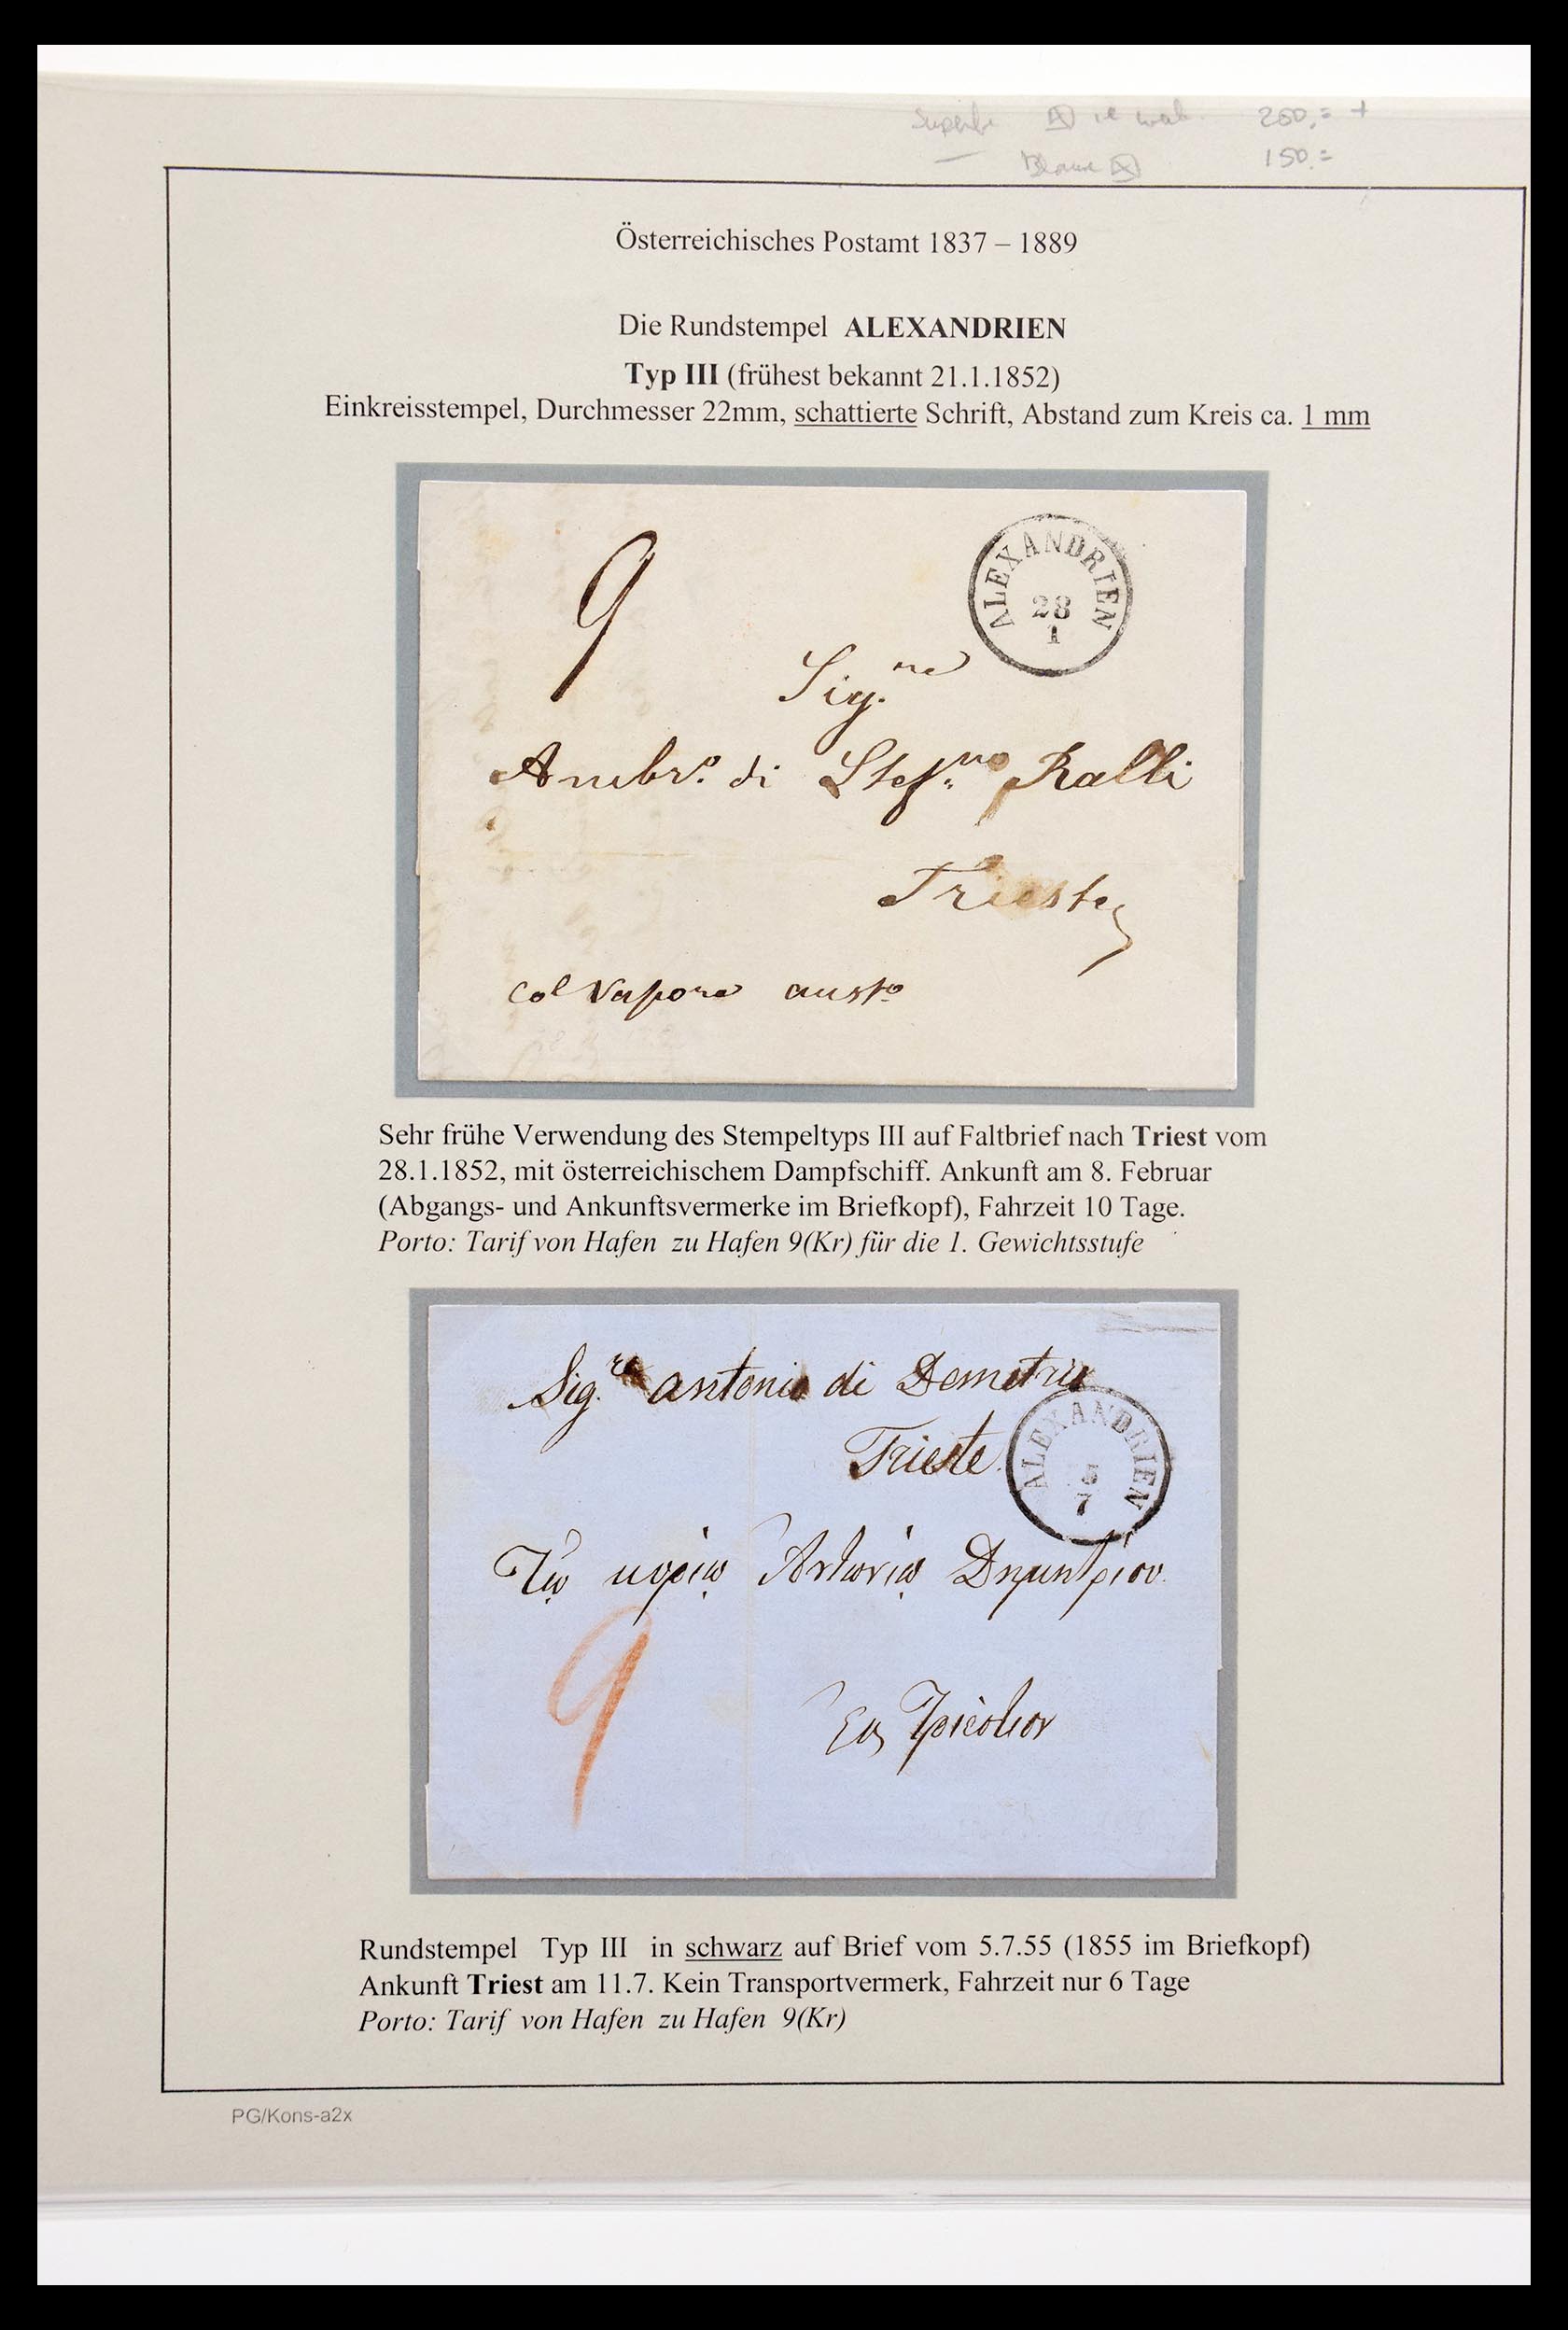 250,= +
150.=
Österreichisches Postamt 1837 – 1889
Die Rundstempel ALEXANDRIEN
Typ III (frühest bekannt 21.1.1852)
Einkreisstempel, Durchmesser 22mm, schattierte Schrift, Abstand zum Kreis ca. 1 mm
9
ALEXANDRIEN
28
1
Sig.re
Ambr.o di Stef.no Ralli
Trieste
col Vapore aust.o
Sehr frühe Verwendung des Stempeltyps III auf Faltbrief nach Triest vom
28.1.1852, mit österreichischem Dampfschiff. Ankunft am 8. Februar
(Abgangs- und Ankunftsvermerke im Briefkopf), Fahrzeit 10 Tage.
Porto: Tarif von Hafen zu Hafen 9(Kr) für die 1. Gewichtsstufe
Sig.re Antonio di Demetrio
Trieste.
ALEXANDRIEN
5
7
Τῷ κυρίῳ Ἀντωνίῳ Δημητρίου
9
Εἰς Τριέστιον
Rundstempel Typ III in schwarz auf Brief vom 5.7.55 (1855 im Briefkopf)
Ankunft Triest am 11.7. Kein Transportvermerk, Fahrzeit nur 6 Tage
Porto: Tarif von Hafen zu Hafen 9(Kr)
PG/Kons-a2x